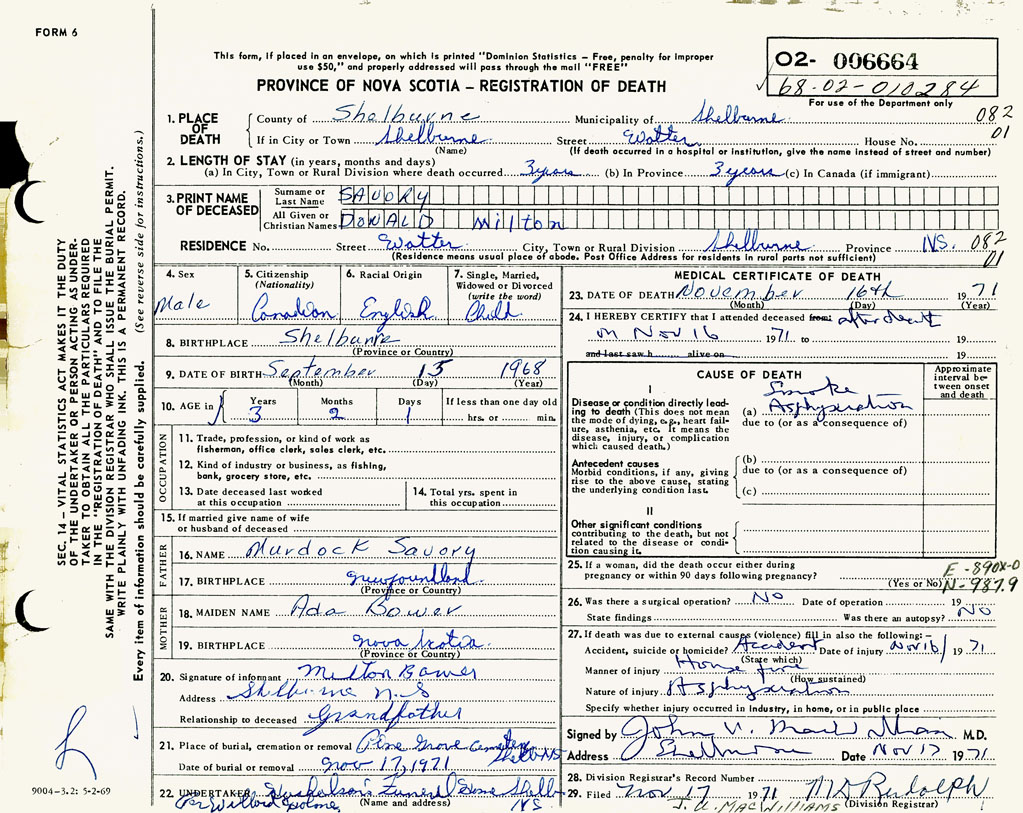 FORM 6
This form, if placed in an envelope, on which is printed "Dominion Statistics – Free, penalty for improper
use $50," and properly addressed will pass through the mail "FREE"
PROVINCE OF NOVA SCOTIA – REGISTRATION OF DEATH
02- 006664
68-02-010284
For use of the Department only
1. PLACE OF DEATH
County of Shelburne Municipality of Shelburne 082
If in City or Town Shelburne Street Watter House No. 01
(Name) (If death occurred in a hospital or institution, give the name instead of street and number)
2. LENGTH OF STAY (in years, months and days)
(a) In City, Town or Rural Division where death occurred 3 years (b) In Province 3 years (c) In Canada (if immigrant)
3. PRINT NAME OF DECEASED
Surname or Last Name SAVORY
All Given or Christian Names DONALD Milton
RESIDENCE No. Street Watter City, Town or Rural Division Shelburne Province NS. 082
(Residence means usual place of abode. Post Office Address for residents in rural parts not sufficient) 01
4. Sex
Male
5. Citizenship
(Nationality)
Canadian
6. Racial Origin
English
7. Single, Married,
Widowed or Divorced
(write the word)
Child
8. BIRTHPLACE Shelburne
(Province or Country)
9. DATE OF BIRTH September 15 1968
(Month) (Day) (Year)
10. AGE in
Years Months Days If less than one day old
3 2 1 hrs. or min.
OCCUPATION
11. Trade, profession, or kind of work as
fisherman, office clerk, sales clerk, etc.
12. Kind of industry or business, as fishing,
bank, grocery store, etc.
13. Date deceased last worked
at this occupation
14. Total yrs. spent in
this occupation
15. If married give name of wife
or husband of deceased
FATHER
16. NAME Murdock Savory
17. BIRTHPLACE Newfoundland
(Province or Country)
MOTHER
18. MAIDEN NAME Ada Bower
19. BIRTHPLACE Nova Scotia
(Province or Country)
20. Signature of informant Milton Bower
Address Shelburne N.S
Relationship to deceased Grandfather
21. Place of burial, cremation or removal Pine Grove Cemetery
Shelb NS
Date of burial or removal Nov 17, 1971
22. UNDERTAKER Funeral Home Shelb
(Name and address) NS.
Per Willard
MEDICAL CERTIFICATE OF DEATH
23. DATE OF DEATH November 16th 1971
(Month) (Day) (Year)
24. I HEREBY CERTIFY that I attended deceased from: after death
on Nov 16 1971 to 19
and last saw h alive on 19
CAUSE OF DEATH
Approximate
interval be-
tween onset
and death
I
Disease or condition directly lead-
ing to death (This does not mean
the mode of dying, e.g., heart fail-
ure, asthenia, etc. It means the
disease, injury, or complication
which caused death.)
Smoke
(a) Asphyxiation
due to (or as a consequence of)
Antecedent causes
Morbid conditions, if any, giving
rise to the above cause, stating
the underlying condition last.
(b)
due to (or as a consequence of)
(c)
II
Other significant conditions
contributing to the death, but not
related to the disease or condi-
tion causing it.
25. If a woman, did the death occur either during
pregnancy or within 90 days following pregnancy?
(Yes or No)
E-890X-0
N-987.9
26. Was there a surgical operation? No Date of operation 19
State findings Was there an autopsy? No
27. If death was due to external causes (violence) fill in also the following:–
Accident, suicide or homicide? Accident Date of injury Nov 16/ 1971
(State which)
Manner of injury House fire
(How sustained)
Nature of injury Asphyxiation
Specify whether injury occurred in industry, in home, or in public place
Signed by John M.D.
Address Shelburne Date Nov 17 1971
28. Division Registrar's Record Number
29. Filed Nov 17 1971 M D Rudolph
J. U. MACWILLIAMS (Division Registrar)
SEC. 14 – VITAL STATISTICS ACT MAKES IT THE DUTY
OF THE UNDERTAKER OR PERSON ACTING AS UNDER-
TAKER TO OBTAIN ALL THE PARTICULARS REQUIRED
IN THE "REGISTRATION OF DEATH" AND TO FILE THE
SAME WITH THE DIVISION REGISTRAR WHO SHALL ISSUE THE BURIAL PERMIT.
WRITE PLAINLY WITH UNFADING INK. THIS IS A PERMANENT RECORD.
Every item of information should be carefully supplied. (See reverse side for instructions.)
9004-3.2: 5-2-69